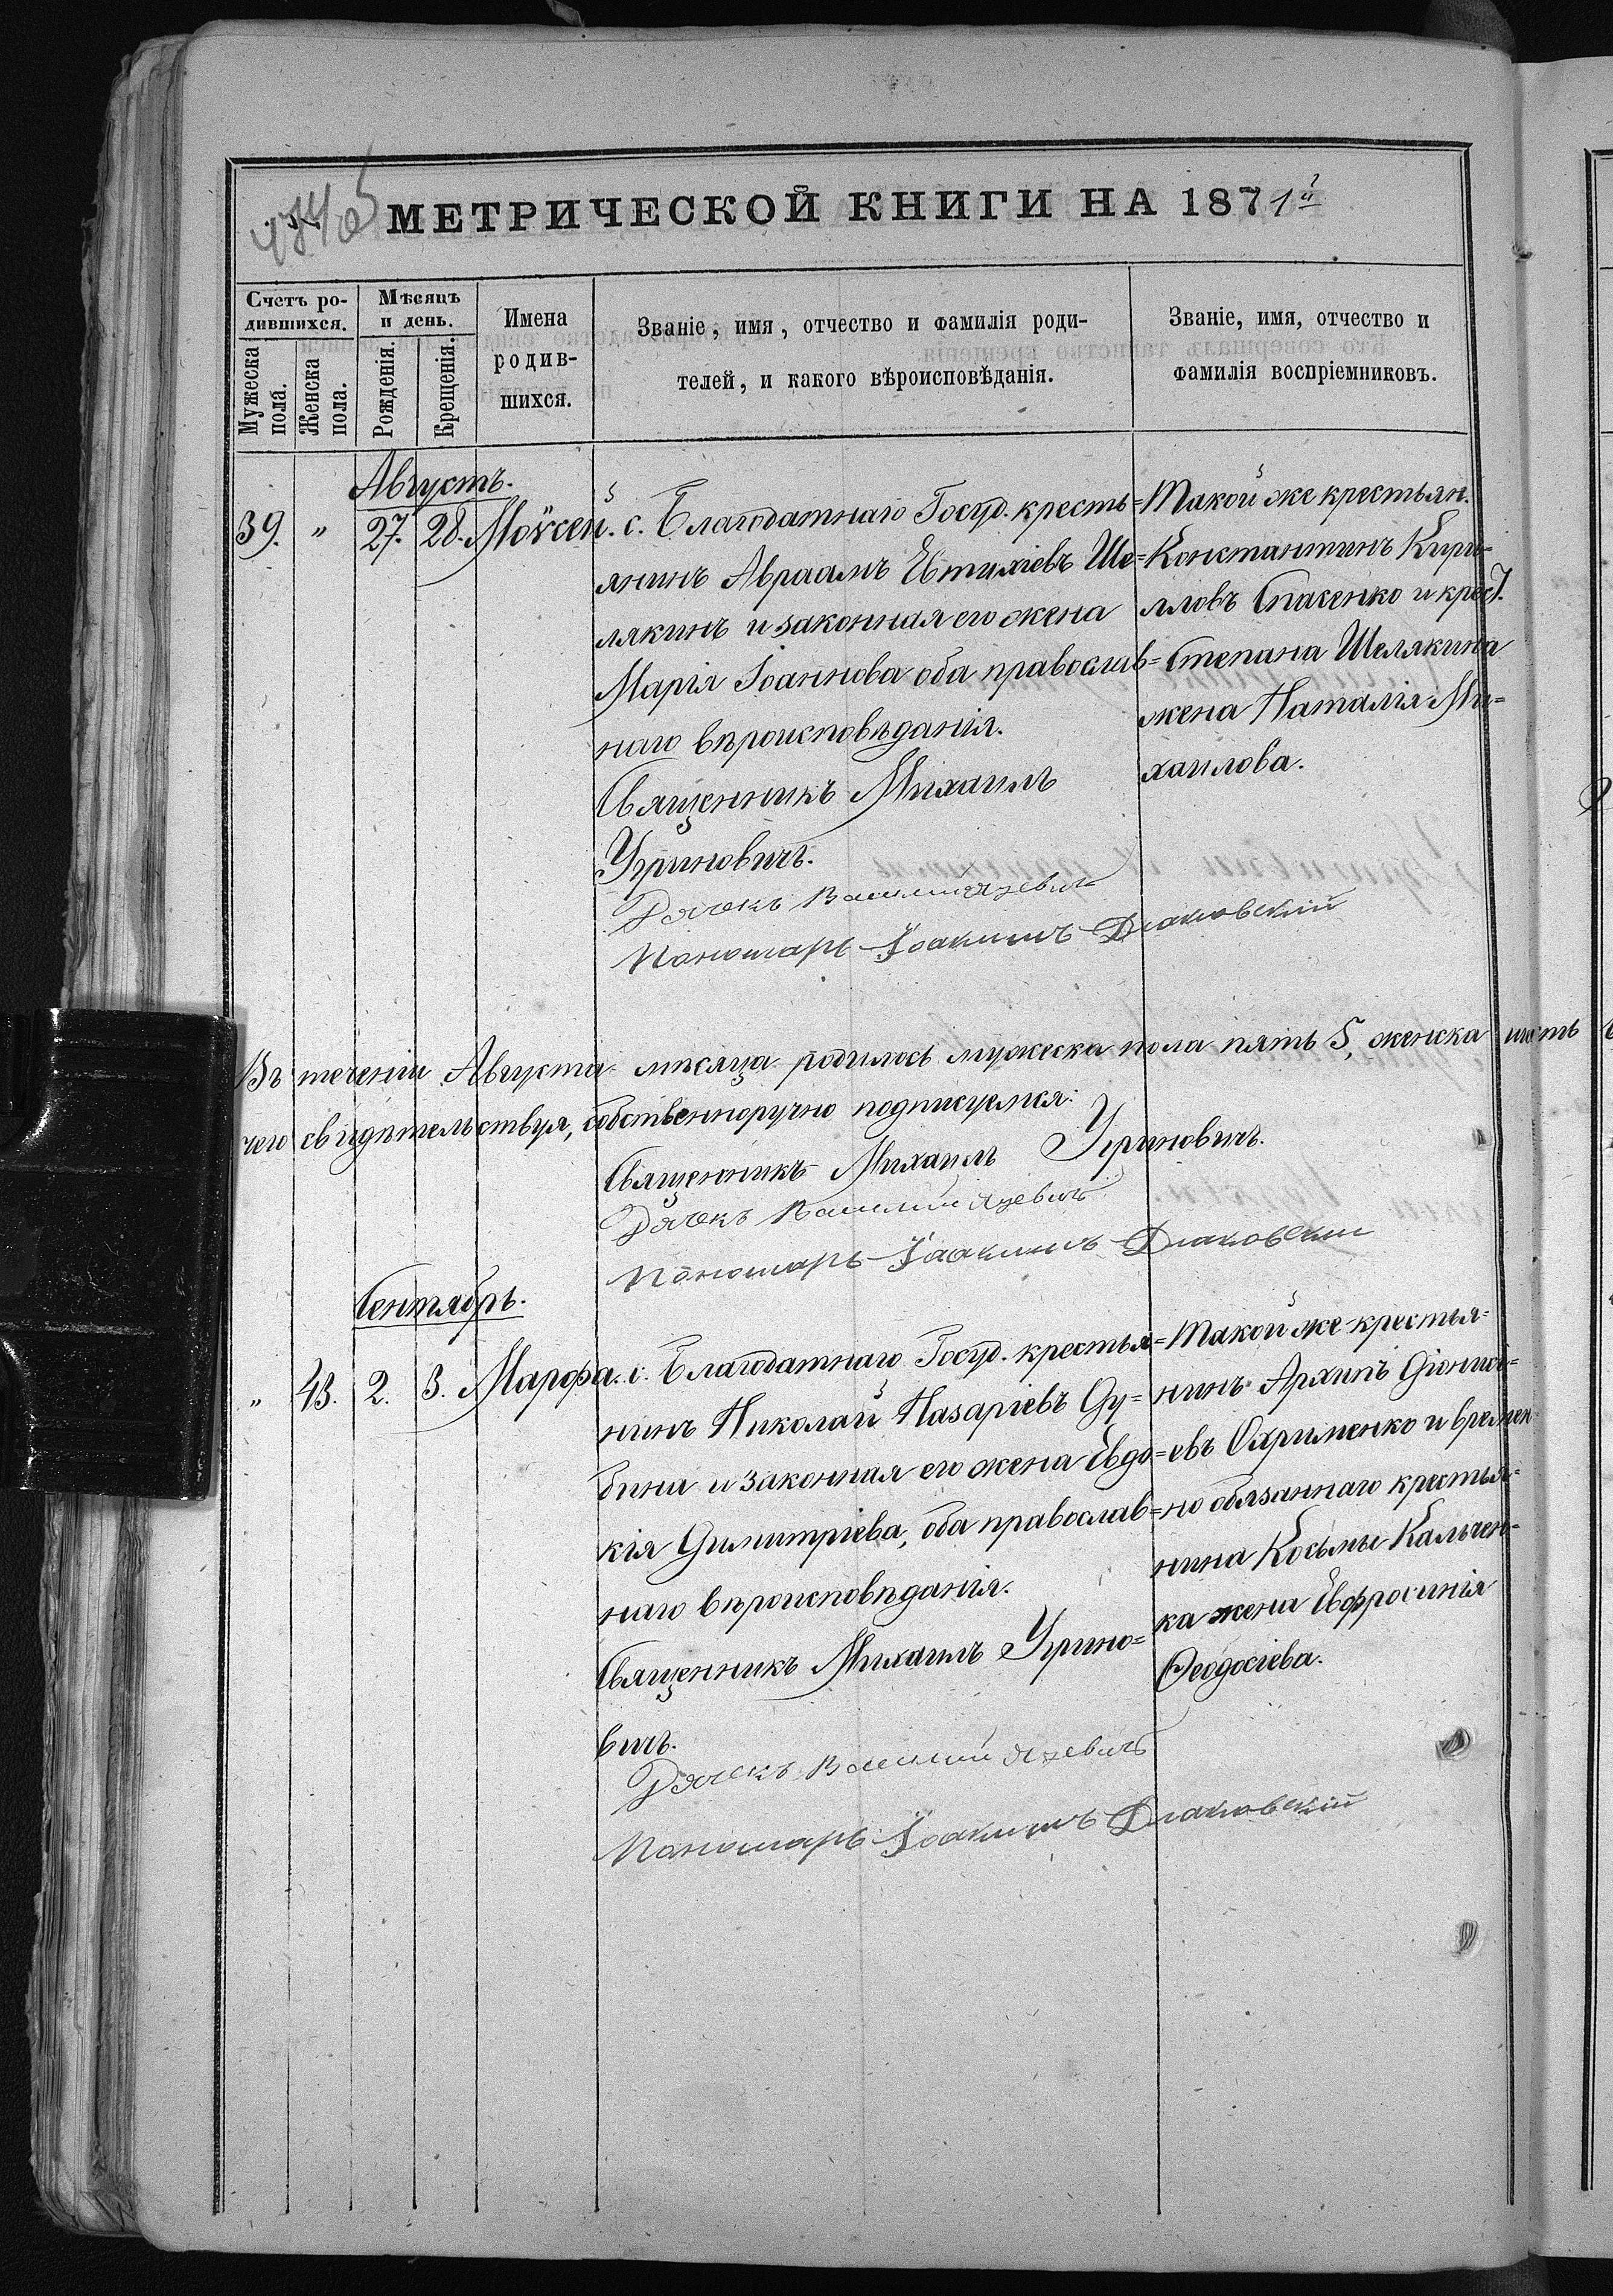 МЕТРИЧЕСКОЙ КНИГИ НА 1871й
Счетъ ро-
дившихся.
Мѣсяцъ
и день.
Мужеска
пола.
Женска
пола.
Рожденія.
Крещенія.
Имена
родив-
шихся.
Званіе, имя, отчество и фамилія роди-
телей, и какого вѣроисповѣданія.
Званіе, имя, отчество и
фамилія воспріемниковъ.
Августъ.
39. " 27. 28. Моѵсей.
с. Благодатнаго Госуд. кресть=
янинъ Авраамъ Евтихіевъ Ше=
лякинъ и законная его жена
Марія Іоаннова оба православ=
наго вѣроисповѣданія.
Священникъ Михаилъ
Угриновичъ.
Дячекъ Василий Язевичъ
Пономарь Іоакимъ Діаковскій
Такой же крестьян.
Константинъ Кири-
лловъ Спасенко и крест.
Степана Шелякина
жена Наталія Ми=
хаилова.
Въ теченіи Августа мѣсяца родилось мужеска пола пять 5, женска шесть
чего свидѣтельствуя, собственноручно подписуемся:
Священникъ Михаилъ Угриновичъ.
Дячекъ Василий Язевичъ
Пономарь Іоакимъ Діаковский
Сентябрь.
" 43. 2. 3. Марфа.
с. Благодатнаго Госуд. крестья=
нинъ Николай Назаріевъ Ду=
бина и законная его жена Евдо=
кія Димитріева, оба православ=
наго вѣроисповѣданія.
Священникъ Михаилъ Угрино=
вичъ.
Дячекъ Василий Язевичъ
Пономарь Іоакимъ Діаковскій
Такой же крестья=
нинъ Архипъ Діониси=
евъ Охрименко и времен
но обязаннаго крестья=
нина Косьмы Кальчен=
ка жена Евфросинія
Ѳеодосіева.